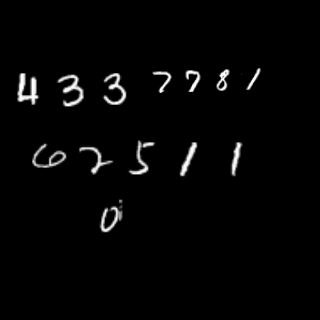 4337781
62511
0